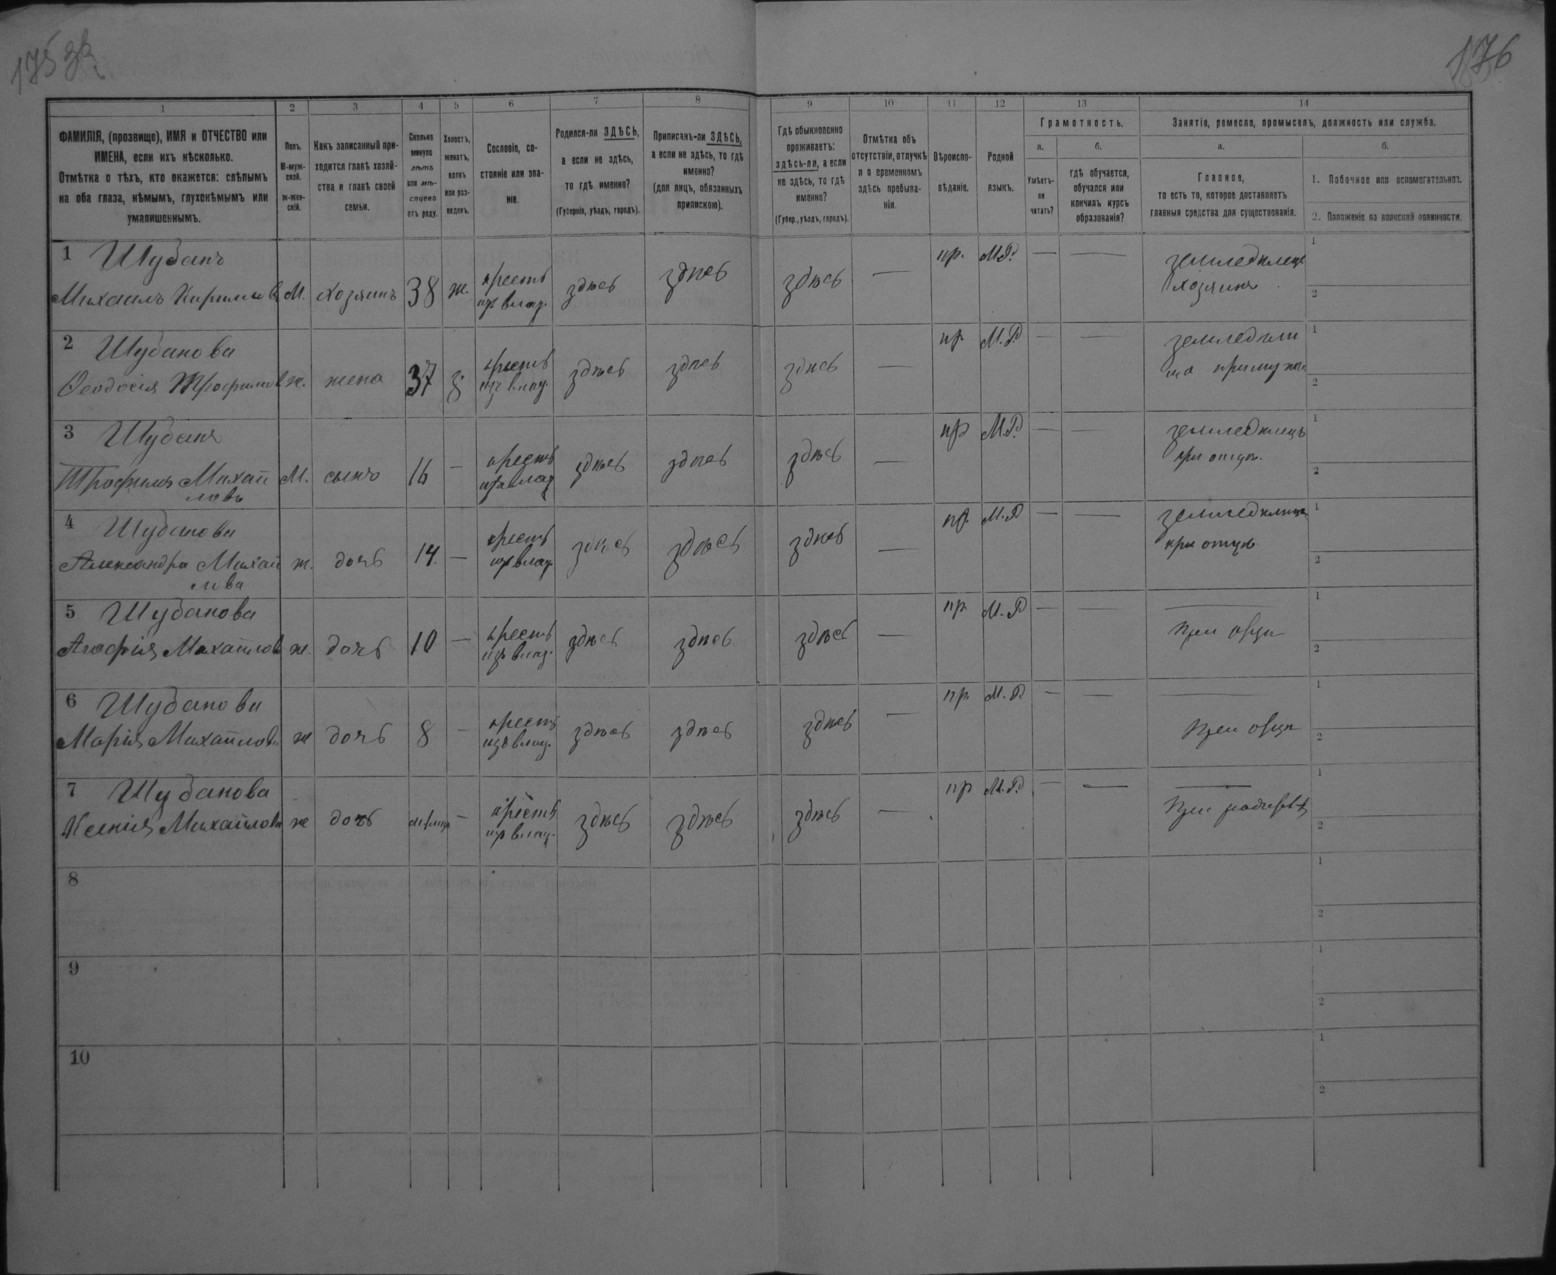 176
1
2
3
4
5
6
7
8
9
10
11
12
13
14
ФАМИЛІЯ, (прозвище), ИМЯ и ОТЧЕСТВО или
ИМЕНА, если ихъ нѣсколько.
Отмѣтка о тѣхъ, кто окажется: слѣпымъ
на оба глаза, нѣмымъ, глухонѣмымъ или
умалишеннымъ.
Полъ.
М-муж-
ской.
ж-жен-
скій.
Какъ записанный при-
ходится главѣ хозяй-
ства и главѣ своей
семьи.
Сколько
минуло
лѣтъ
или мѣ-
сяцевъ
отъ роду.
Холостъ,
женатъ,
вдовъ
или раз-
веденъ.
Сословіе, со-
стояніе или зва-
ніе.
Родился-ли ЗДѢСЬ,
а если не здѣсь,
то гдѣ именно?
(Губернія, уѣздъ, городъ).
Приписанъ-ли ЗДѢСЬ,
а если не здѣсь, то гдѣ
именно?
(для лицъ, обязанныхъ
припискою).
Гдѣ обыкновенно
проживаетъ:
здѣсь-ли, а если
не здѣсь, то гдѣ
именно?
(Губер., уѣздъ, городъ).
Отмѣтка объ
отсутствіи, отлучкѣ
и о временномъ
здѣсь пребыва-
ніи.
Вѣроиспо-
вѣданіе.
Родной
языкъ.
Грамотность.
а.
Умѣетъ-
ли
читать?
б.
гдѣ обучается,
обучался или
кончилъ курсъ
образованія?
Занятіе, ремесло, промыселъ, должность или служба.
а.
Главное,
то есть то, которое доставляетъ
главныя средства для существованія.
б.
1. Побочное или вспомогательное.
2. Положеніе по воинской повинности.
1 Шубанъ
Михаилъ М. хозяинъ 38 ж. крестъ изъ влад. здѣсь здѣсь здѣсь — пр. М.Р. — — земледѣлецъ хозяинъ 1 2
2 Шубанова
Ѳеодосія ж. жена 37 з. крестъ изъ влад. здѣсь здѣсь здѣсь — пр. М.Р. — — при мужѣ 1 2
3 Шубанъ
Трофимъ Михай
ловъ М. сынъ 16 — крестъ изъ влад здѣсь здѣсь здѣсь — пр М.Р. — — земледѣлецъ при отцѣ 1 2
4 Шубанова
Александра Михай
лова ж. дочь 14 — крестъ изъ влад. здѣсь здѣсь здѣсь — пр. М.Р — — при отцѣ 1 2
5 Шубанова
Агафія Михайлов ж. дочь 10 — крестъ изъ влад. здѣсь здѣсь здѣсь — пр. М.Р — — — при отцѣ 1 2
6 Шубанова
Марія Михайлова ж дочь 8 — крестъ изъ влад. здѣсь здѣсь здѣсь — пр. М.Р. — — — при отцѣ 1 2
7 Шубанова
Ксенія Михайлова ж дочь — крестъ изъ влад. здѣсь здѣсь здѣсь — пр М.Р. — — — при 1 2
8 1 2
9 1 2
10 1 2